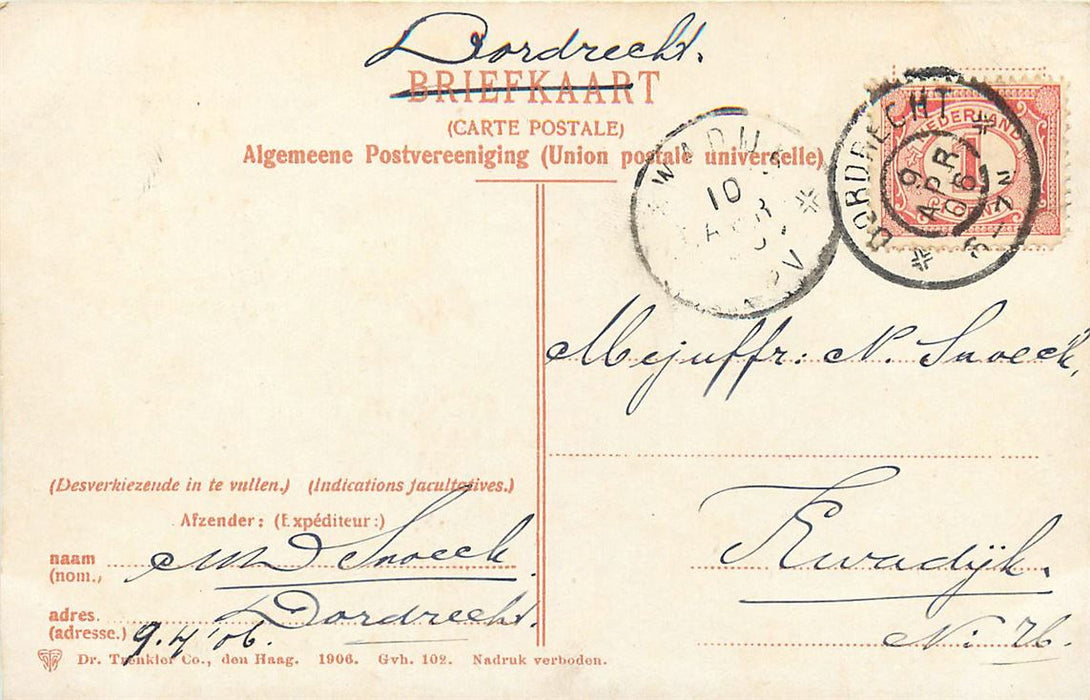 Dordrecht.
BRIEFKAART
(CARTE POSTALE)
Algemeene Postvereeniging (Union postale universelle)
DORDRECHT
9
APR
06
6-7N
NEDERLAND
1
10
Mejuffr: N. Snoeck,
Kwadijk.
N: H.
(Desverkiezende in te vullen.) (Indications facultatives.)
Afzender: (Expéditeur:)
naam Snoeck.
(nom.,
adres. Dordrecht.
(adresse.) 9.4'06.
Dr. Trenkler Co., den Haag. 1906. Gvh. 102. Nadruk verboden.